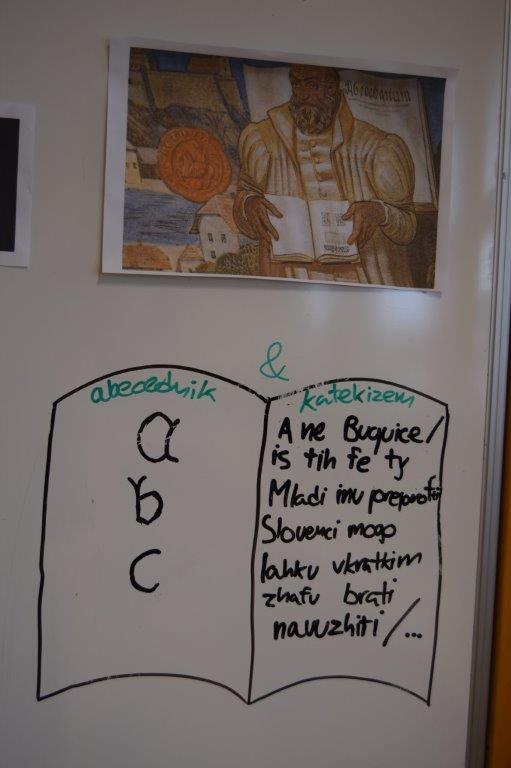 Abecedarium
&
abecednik
a
b
c
katekizem
Ane Buquice/
is tih fe ty
Mladi inu preprosti
Slovenci mogo
lahku vkratkim
zhafu brati
navuzhiti /...